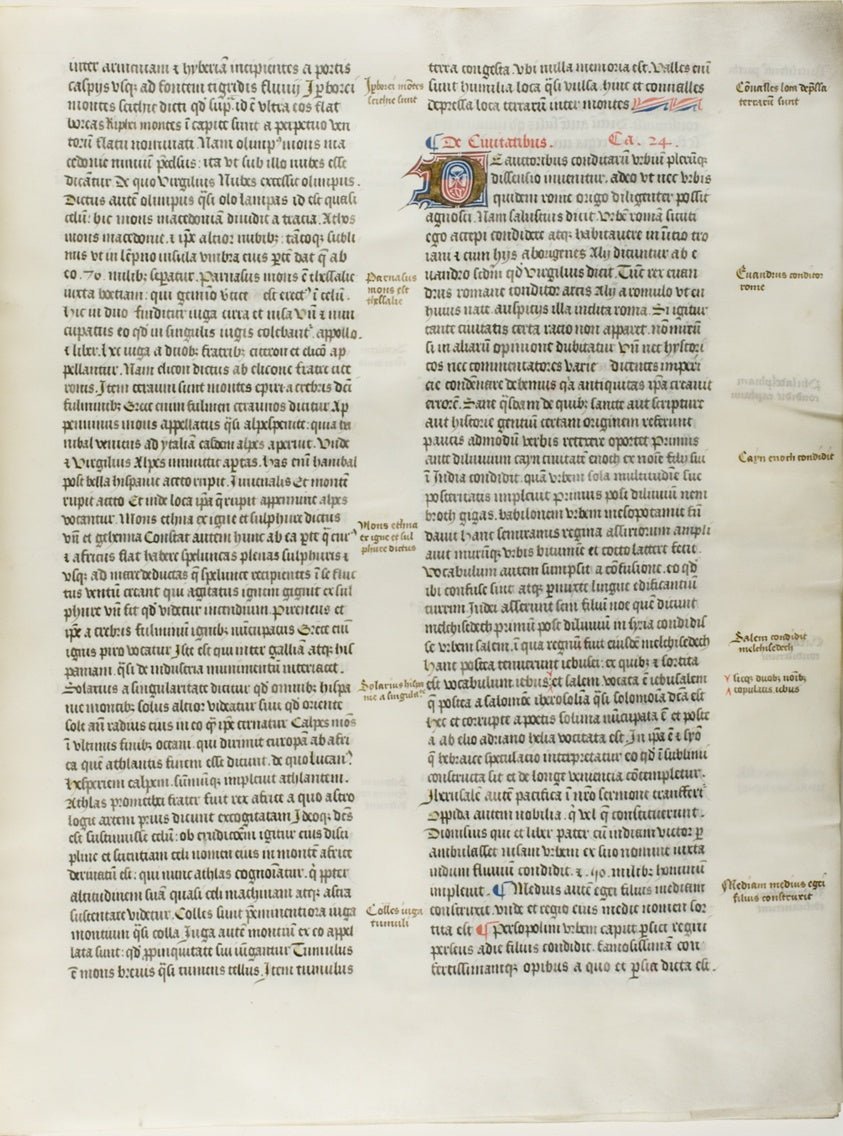 inter armeniam ⁊ hyberiā incipientes a portis
caspijs vsq; ad fontem tigridis fluuij Iꝑborei
montes scithie dicti qd sup̄ id ē vltra eos flat
boreas Riphei montes ī capite sunt a perpetuo ven
torū flatu nominati Nam olimp⁹ mons ma
cedonie nimiū p̄celsus: ita vt sub illo nubes esse
dicātur De quo Virgilius Nubes excessit olimpus.
Dictus autē olimpus q̄si olo lampas id est quasi
celū: hic mons macedoniā diuidit a tracia. Athos
mons macedonie. ⁊ ip̄e altior nubib; tātoq; subli
mis vt in lēpno insula vmbra eius
eo .70. milib; sep̄atur. Parnasus mons ē thessalie
iuxta boetiam: qui gemīo v̓tice est erect⁹ ī celū.
Hic in duo finditur iuga cirra et nisa Vn̄ ⁊ nun
cupatus eo qd in singulis iugis colebant̄ appollo.
⁊ liber. hec iuga a duob; fratrib; citeron et elicō ap
pellantur. Nam elicon dictus ab elicone fratre cite
ronis. Item ceraunij sunt montes epiri a crebris dc̄i
fulminib; Grece enim fulmen ceraunos dicitur Ap
penninus mons appellatus q̄si alpespenice. quia ha
nibal veniens ad ytaliā easdem alpes aperuit. Vnde
⁊ Virgilius Alpes inmittit aptas. has em̄ hanibal
post bella hispanie aceto rupit. Iuuenalis Et montē
rupit aceto Et inde loca ip̄a q̄ rupit appennine alpes
vocantur. Mons ethna ex igne et sulphure dictus
vn̄ et gehenna Constat autem hunc ab ea ꝑte q̄ eur⁹
⁊ africus flat habere speluncas plenas sulphuris ⁊
vsq; ad mare deductas q̄ spelunce recipientes ī se fluc
tus ventū creant qui agitatus ignem gignit ex sul
phure vn̄ fit qd videtur incendium. Pireneus et
ip̄e a crebris fulminū ignib; nūcupatus Grece em̄
ignis piro vocatur. Iste est qui inter galliā atq; his
paniam. q̄si de industria munimentū interiacet.
Solarius a singularitate dicitur qd omnib; hispa
nie montib; solus altior videatur siue qd oriente
sole an̄ radius eius in eo q̄ ip̄e cernatur Calpes mōs
ī vltimis finib; oceani. qui dirimit europā ab afri
ca quē athlantis finem esse dicunt. de quo lucan⁹
hesperiem calpem. sūmūq; impleuit athlantem.
Athlas promethei frater fuit rex africe a quo astro
logie artem prius dicunt excogitatam Ideoq; dc̄s
est sustinuisse celū: ob erudicoēm igitur eius disci
pline et scientiam celi nomen eius in montē africe
deriuatū est: qui nunc athlas cognoīatur. q̄ ꝓpter
altitudinem suā quasi celi machinam atq; astra
sustentare videtur. Colles sunt p̄eminentiora iuga
montium q̄si colla. Iuga autē montiū ex eo appel
lata sunt: qd ꝓpinquitate sui iūgantur Tumulus
ē mons breuis q̄si tumens tellus. Item tumulus
terra congesta. vbi nulla memoria est. Valles em̄
sunt humilia loca q̄si vulsa. hinc et conualles
depressa loca terrarū inter montes
¶ De Ciuitatibus. Ca. 24.
De auctoribus conditarū vrbiū plerūq;
dissensio inuenitur. adeo vt nec vrbis
quidem rome origo diligenter possit
agnosci. Nam salustius dicit. Vrbē romā sicuti
ego accepi condidere atq; habitauere in inicio tro
iani ⁊ cum hijs aborigenes Alij dicuntur ab e
uandro scdm̄ qd virgilius dicit. Tūc rex euan
drus romane conditor arcis Alij a romulo vt en
huius nate auspicijs illa inclita roma. Si igitur
tante ciuitatis certa racio non apparet. nō mirū
si in aliarū opinione dubitatur Vn̄ nec hystori
cos nec commentatores varie dicentes imperi
cie condēnare debemus q̄a antiquitas ip̄a creauit
errorē. Sane q̄sdam de quib; sancte aut scripture
aut historie gentiū certam originem referunt
paucis admodū verbis retexere oportet Primus
ante diluuium cayn ciuitatē enoch ex noīe filij sui
ī India condidit. quā vrbem sola multitudīe sue
posteritatis impleuit Primus post diluuiū nem
broth gigas. babilonem vrbem mesopotamie fū
dauit hanc semiramis regina assiriorum ampli
auit murūq; vrbis bitumīe et cocto latere fecit.
Vocabulum autem sumpsit a cōfusione. eo qd
ibi confuse sint atq; ꝑmixte lingue edificantiū
turrem Iudei asserunt sem filiū noe quē dicunt
melchisedech primū post diluuiū in syria condidis
se vrbem salem. ī qua regnū fuit eiusdē melchisedech
Hanc postea tenuerunt iebusei: ex quib; ⁊ sortita
est vocabulum iebus et salem vocata ē iehusalem
q̄ postea a salomōe iherosolīa q̄si solomoīa dc̄a est
hec et corrupte a poetis solima nūcupata ē et poste
a ab elio adriano helia vocitata est. In ip̄a ē ⁊ syō
q̄ hebraice speculacio interpretatur eo qd ī sublimi
constructa sit et de longe venientia cōtempletur.
Iherusalē autē pacifica ī nr̄o sermone transfert̄
Oppida autem nobilia. q̄ vel q̄ constituerunt.
Dionisius qui et liber pater cū indiam victor ꝑ
ambulasset nisam vrbem ex suo nomine iuxta
indum fluuiū condidit. ⁊ .50. milib; hominū
impleuit. ¶ Medius autē egei filius mediam
construxit. vnde et regio eius medie nomen sor
tita est ¶ Persopolim vrbem caput ꝑsici regni
perseus adie filius condidit. famosissimam con
fertissimamq; opibus a quo et ꝑsia dicta est.
Iꝑborei mōtes
scithie sunt
Parnasus
mons est
thessalie
Mons ethna
ex igne et sul
phure dictus
Solarius hispa
nie a singula⁹
Colles iuga
tumuli
Cōualles loca dep̄ssa
terrarū sunt
Euandrius conditor
rome
Cayn enoch condidit
Salem condidit
melchisedech
sicq; duob; noīb;
copulatis iebus
Mediam medius egei
filius construxit